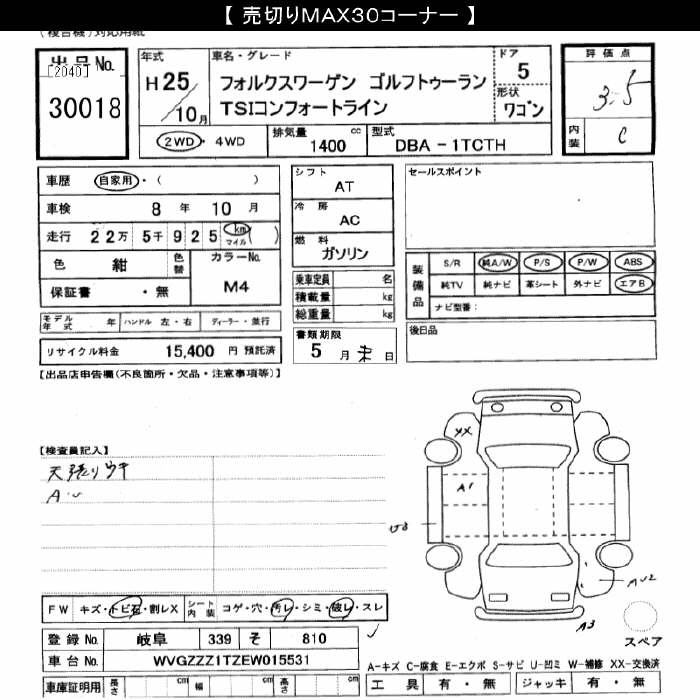 【 売切りMAX30コーナー 】
(複合機)対応用紙
出品No.
[2040]
30018
年式
H25
10月
車名・グレード
フォルクスワーゲン ゴルフトゥーラン
TSIコンフォートライン
ドア
5
形状
ワゴン
2WD・4WD
排気量 1400 cc
型式 DBA - 1TCTH
評価点
3.5
内装 C
車歴 自家用・( )
車検 8 年 10 月
走行 22万 5千 925 km マイル( )
色 紺
色替
カラーNo.
M4
保証書 ・無
シフト
AT
冷房
AC
燃料
ガソリン
乗車定員 名
積載量 kg
総重量 kg
セールスポイント
装備品
S/R 純A/W P/S P/W ABS
純TV 純ナビ 革シート 外ナビ エアB
ナビ型番:
モデル年式 年 ハンドル 左・右 ディーラー・並行
リサイクル料金 15,400 円 預託済
書類期限
5 月 末 日
後日品
【出品店申告欄(不良箇所・欠品・注意事項等)】
【検査員記入】
天張りウキ
XX
A1
U3
AU2
A3
スペア
FW キズ・トビ石・割レX
シート内装 コゲ・穴・汚レ・シミ・破レ・スレ
登録No. 岐阜 339 そ 810
車台No. WVGZZZ1TZEW015531
車庫証明用 長さ cm 幅 cm 高さ cm
A-キズ C-腐食 E-エクボ S-サビ U-凹ミ W-補修 XX-交換済
工具 有・無 ジャッキ 有・無